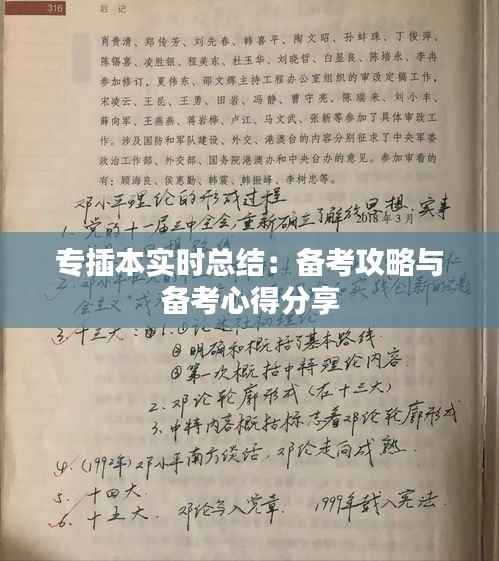 316 后 记
肖贵清、郑传芳、刘先春、韩喜平、陶文昭、孙蚌珠、丁俊萍、
陈锡喜、凌胜银、程美东、杜玉华、刘晓哲、白显良、陈培永、李冉
参加修订，夏伟东、邵文辉主持工程办公室组织的审改定稿工作，
宋凌云、王昆、王勇、田岩、冯静、曹守亮、陈瑞来、刘小丰、
薛向军、王燕燕、蒋岩桦、卢江、马文武、张新等参加了具体审改工
作。涉及国防和军队建设、外交、港澳台的内容分别征求了中央军委
政治工作部、外交部、国务院港澳办和中央台办的意见。参加审看的
有：顾海良、侯惠勤、韩震、韩振峰、李树忠等。
邓小平理论的形成过程
2018年3月
1. 党的十一届三中全会，重新确立了解放思想，实事
专插本实时总结：备考攻略与
备考心得分享
会主义"成
3. 十三大：
②明确和概括了基本路线.
③第一次概括中特理论内容.
2. 邓论轮廓形式（在十三大）
3. 中特内容概括标志着邓论轮廓形式
4. (1992年)邓小平南方谈话，邓论走向成熟.
5. 十四大.
6. 十五大. 邓论写入党章. 1999年载入宪法.